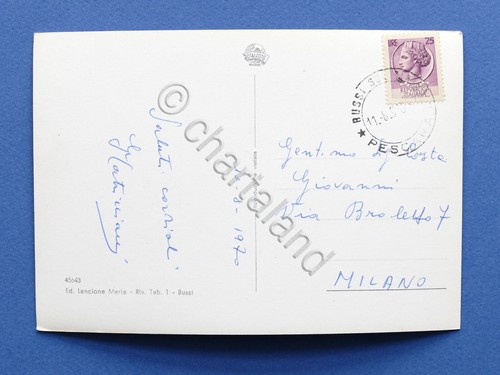 LIRE 25
BUSSI S
11-8
PESCARA
Saluti cordiali
8 - 1970
Gent.mo
Giovanni
Via Broletto 7
MILANO
45643
Ed. Lancione Maria - Riv. Tab. 1 - Bussi
© chartaland